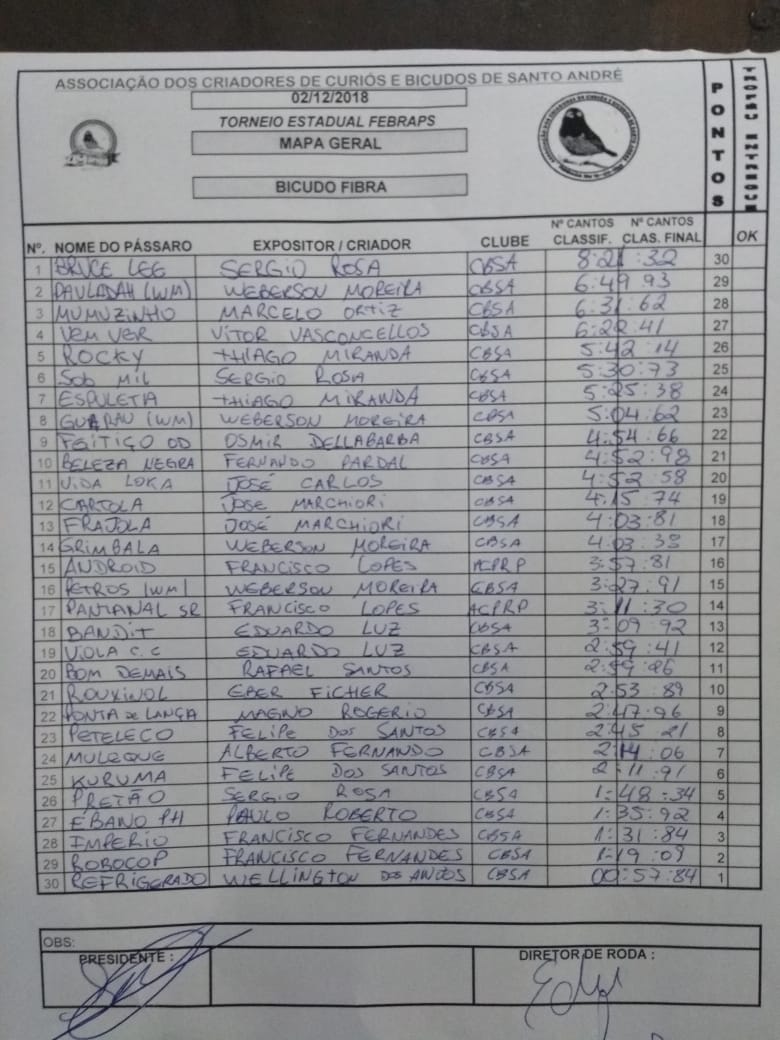 ASSOCIAÇÃO DOS CRIADORES DE CURIÓS E BICUDOS DE SANTO ANDRÉ
02/12/2018
TORNEIO ESTADUAL FEBRAPS
MAPA GERAL
BICUDO FIBRA
PONTOS
TROFEU ENTREGUE
Nº. NOME DO PÁSSARO EXPOSITOR / CRIADOR CLUBE Nº CANTOS CLASSIF. Nº CANTOS CLAS. FINAL OK
1 BRUCE LEE SERGIO ROSA CBSA 8:21:32 30
2 PAULADAH (WM) WEBERSON MOREIRA CBSA 6:49.93 29
3 MUMUZINHO MARCELO ORTIZ CBSA 6:31:62 28
4 VEM VER VITOR VASCONCELLOS CBSA 6:22:41 27
5 ROCKY THIAGO MIRANDA CBSA 5:42:14 26
6 SOB MIL SERGIO ROSA CBSA 5:30:73 25
7 ESPULETA THIAGO MIRANDA CBSA 5:25:38 24
8 GUARAU (WM) WEBERSON MOREIRA CBSA 5:04:62 23
9 FEITIÇO OD OSMIR DELLABARBA CBSA 4:54:66 22
10 BELEZA NEGRA FERNANDO PARDAL CBSA 4:52:98 21
11 VIDA LOKA JOSÉ CARLOS CBSA 4:52:58 20
12 CARTOLA JOSE MARCHIORI CBSA 4:15:74 19
13 FRAJOLA JOSÉ MARCHIORI CBSA 4:03:81 18
14 GRIMBALA WEBERSON MOREIRA CBSA 4:03:38 17
15 ANDROID FRANCISCO LOPES ACPRP 3:57:81 16
16 PETROS (WM) WEBERSON MOREIRA CBSA 3:27:91 15
17 PANTANAL SR FRANCISCO LOPES ACPRP 3:11:30 14
18 BANDIT EDUARDO LUZ CBSA 3:09:92 13
19 VIOLA C.C EDUARDO LUZ CBSA 2:59:41 12
20 BOM DEMAIS RAFAEL SANTOS CBSA 2:59:26 11
21 ROUXINOL EBER FICHER CBSA 2:53:89 10
22 PONTA DE LANÇA MAGNO ROGERIO CBSA 2:47:96 9
23 PETELECO FELIPE DOS SANTOS CBSA 2:45:21 8
24 MULEQUE ALBERTO FERNANDO CBSA 2:14:06 7
25 KURUMA FELIPE DOS SANTOS CBSA 2:11:91 6
26 PRETÃO SERGIO ROSA CBSA 1:48:34 5
27 ÉBANO PH PAULO ROBERTO CBSA 1:35:92 4
28 IMPERIO FRANCISCO FERNANDES CBSA 1:31:84 3
29 ROBOCOP FRANCISCO FERNANDES CBSA 1:19:09 2
30 REFRIGERADO WELLINGTON DOS ANJOS CBSA 00:57:84 1
OBS:
PRESIDENTE : DIRETOR DE RODA :